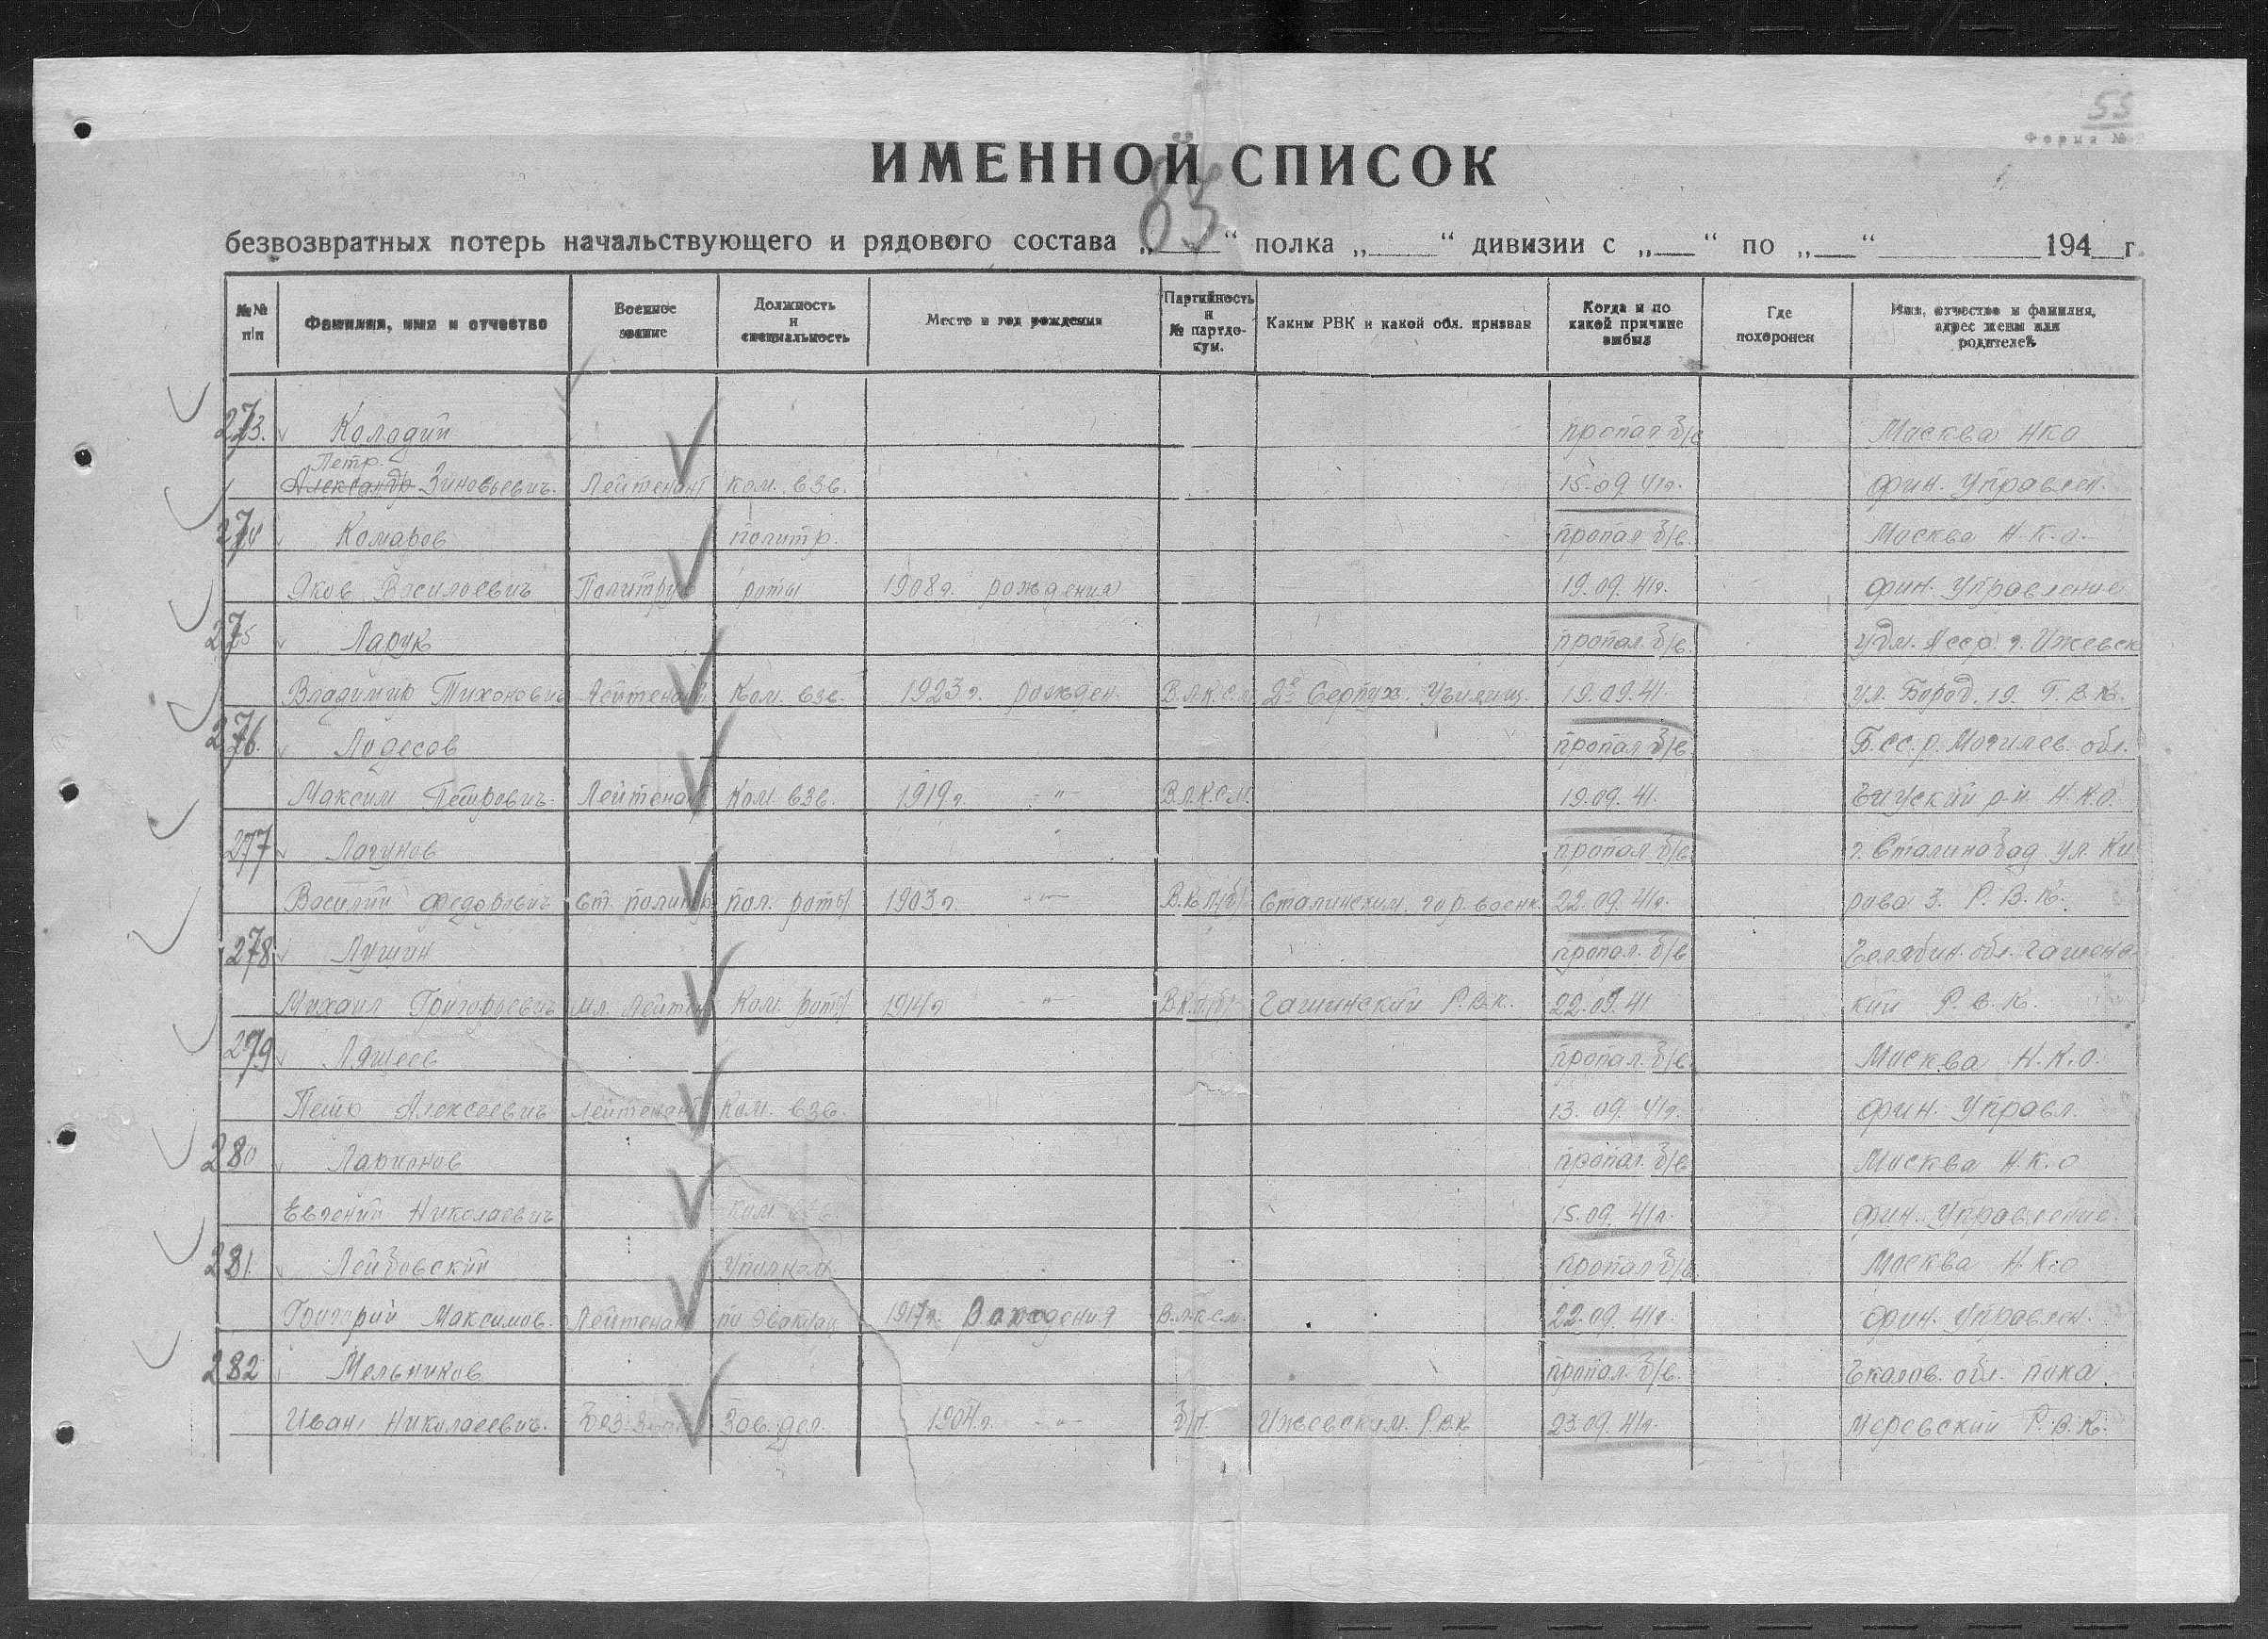 55
Форма №
ИМЕННОЙ СПИСОК
85
безвозвратных потерь начальствующего и рядового состава „___“ полка „___“ дивизии с „___“ по „___“ ___ 194__г.
№№ п/п | Фамилия, имя и отчество | Военное звание | Должность и специальность | Место и год рождения | Партийность и № партдокум. | Каким РВК и какой обл. призван | Когда и по какой причине выбыл | Где похоронен | Имя, отчество и фамилия, адрес жены или родителей
273. Колодий пропал б/в Москва НКО
Петр.
Александр Зиновьевич. Лейтенант ком. взв. 15.09 41г. фин. Управлен.
274 Комаров политр. пропал б/в. Москва Н.К.О.
Яков Васильевич Политрук роты 1908г. рождения 19.09.41г. фин. Управление
275 Ларик пропал б/в. Удм. Асср. г. Ижевск
Владимир Тихонович Лейтенант Ком. взв. 1923г. рожден. В.Л.К.С.М. 2е Серпух. Училищ. 19.09.41. ул. Бород. 19. Г.В.К.
276. Лодесов пропал б/в Б.сс.р. Могилев. обл.
Максим Петрович Лейтенант Ком. взв. 1919г. -"- В.Л.К.С.М. 19.09.41. р-н Н.К.О.
277 Лагунов пропал б/в г. Сталинобад ул. Ки
Василий Федорович Ст. политр пол. роты 1903г. -"- В.К.П/б/ Сталинским. гор. военк. 22.09.41г. рова 3. Р.В.К.
278 Лушин пропал. б/в Челябин. обл.
Михаил Григорьевич Мл. Лейтен Ком. роты 1914г -"- В.К.П/б/ Р.В.К. 22.09.41 кий Р.В.К.
279 Лящеев пропал. б/в. Москва Н.К.О.
Петр Алексеевич Лейтенант Ком. взв. 13.09.41г. фин. Управл.
280 Ларионов пропал. б/в Москва Н.К.О
Евгений Николаевич ком взв. 15.09.41г. фин. Управление.
281. Лейбовский пропал б/в Москва Н.К.О
Григорий Максимов. Лейтенант по эвакуац 1917г. Рождения В.Л.К.С.М. 22.09.41г. фин. Управлен.
282 Мельников пропал. б/в. Чкалов. обл. пока
Иван Николаевич. Без Зван Зав. дел. 1904г. -"- б/п. Ижевским. Р.В.К 23.09.41г. Меревский Р.В.К.